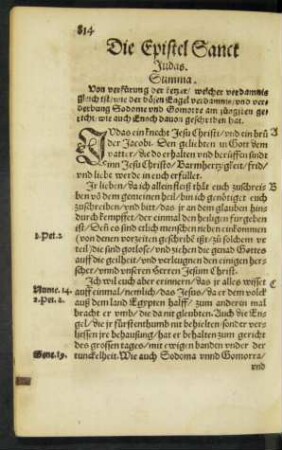 814
Die Epistel Sanct
Judas.
Summa.
Von verfürung der ketzer / welcher verdamnis
gleich ist / wie der bösen Engel verdamnis / vnd ver-
derbung Sodome vnd Gomorre am jüngsten ge-
richt / wie auch Enoch dauon geschriben hat.
JVdas ein knecht Jesu Christi / vnd ein brů A
der Jacobi. Den geliebten in Gott dem
vatter / die do erhalten vnd berüffen sindt
inn Jesu Christo / Barmhertzigkeit / frid /
vnd liebe werde in euch erfüllet.
Ir lieben / da ich allein fleiß thät euch zuschreiben B
von dem gemeinen heil / bin ich genötiget euch
zuschreiben / und bitt / das ir an dem glauben hins
durch kempffet / der einmal den heiligen fürgeben
ist / Den es sind etlich menschen neben einkommen
2.Pet.2. (von denen vorzeiten geschribē ist / zu solchem vr
teil) die sind gotloß / vnd ziehen die gnad Gottes
auff die geilheit / vnd verleugnen den einigen hers
scher / vnnd vnseren Herren Jesum Christ.
Ich wil euch aber erinnern / das jr alles wisset C
Nume.14. auff einmal / nemlich / das Jesus / da er dem volck
2.Pet.2. auß dem land Egypten halff / zum andern mal
bracht er vmb / die da nit gleubten. Auch die En-
gel / die jr fürstenthumb nit behielten / sonder ver-
liessen jre behausung / hat er behalten zum gericht
des grossen tages / mit ewigen banden vnder der
Gene.19. tunckelheit. Wie auch Sodoma vnnd Gomorra /
vnd